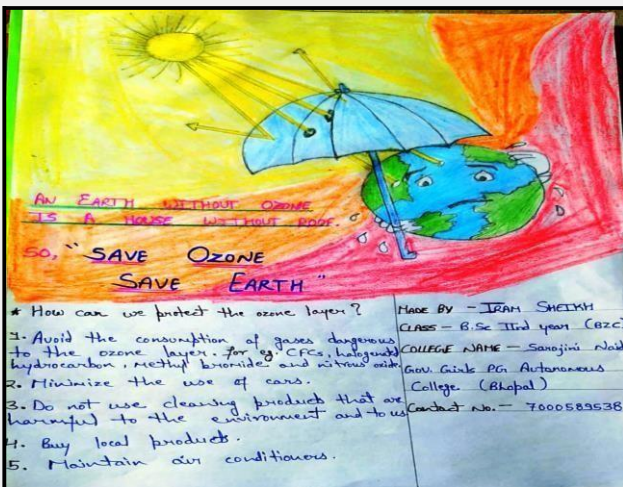 AN EARTH WITHOUT OZONE
IS A HOUSE WITHOUT ROOF.
SO, "SAVE OZONE
SAVE EARTH"
* How can we protect the ozone layer?
1. Avoid the consumption of gases dangerous
to the ozone layer. for eg. CFCs, halogenated
hydrocarbon, methyl bromide and nitrous oxide.
2. Minimize the use of cars.
3. Do not use cleaning products that are
harmful to the environment and to us
4. Buy local products.
5. Maintain air conditioners.
MADE BY - IRAM SHEIKH
CLASS - B.Sc IInd year (BZC)
COLLEGE NAME - Sarojini Naid
Gov. Girls PG Autonomous
College (Bhopal)
Contact No. - 7000589538